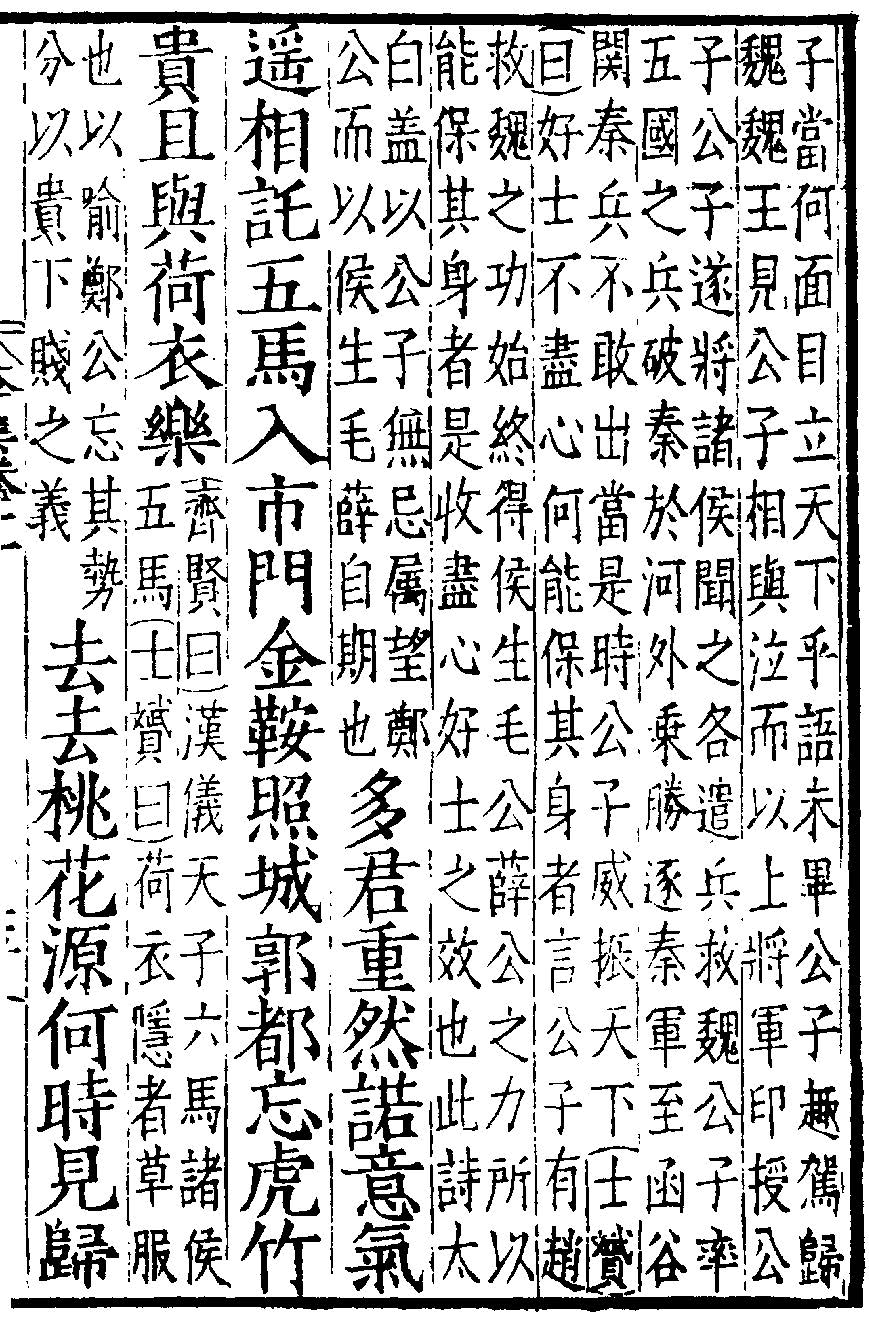 子當何面目立天下乎語未畢公子趣駕歸
魏魏王見公子相與泣而以上將軍印授公
子公子遂將諸侯聞之各遣兵救魏公子率
五國之兵破秦於河外乗勝逐秦軍至函谷
関秦兵不敢出當是時公子威振天下(士贇
曰)好士不盡心何能保其身者言公子有趙
救魏之功始終得侯生毛公薛公之力所以
能保其身者是收盡心好士之效也此詩太
白盖以公子無忌属望鄭
公而以侯生毛薛自期也
多君重然諾意氣
遥相託五馬入市門金鞍照城郭都忘虎竹
貴且與荷衣樂
(齊賢曰)漢儀天子六馬諸侯
五馬(士贇曰)荷衣隱者草服
也以喻鄭公忘其勢
分以貴下賤之義
去去桃花源何時見歸